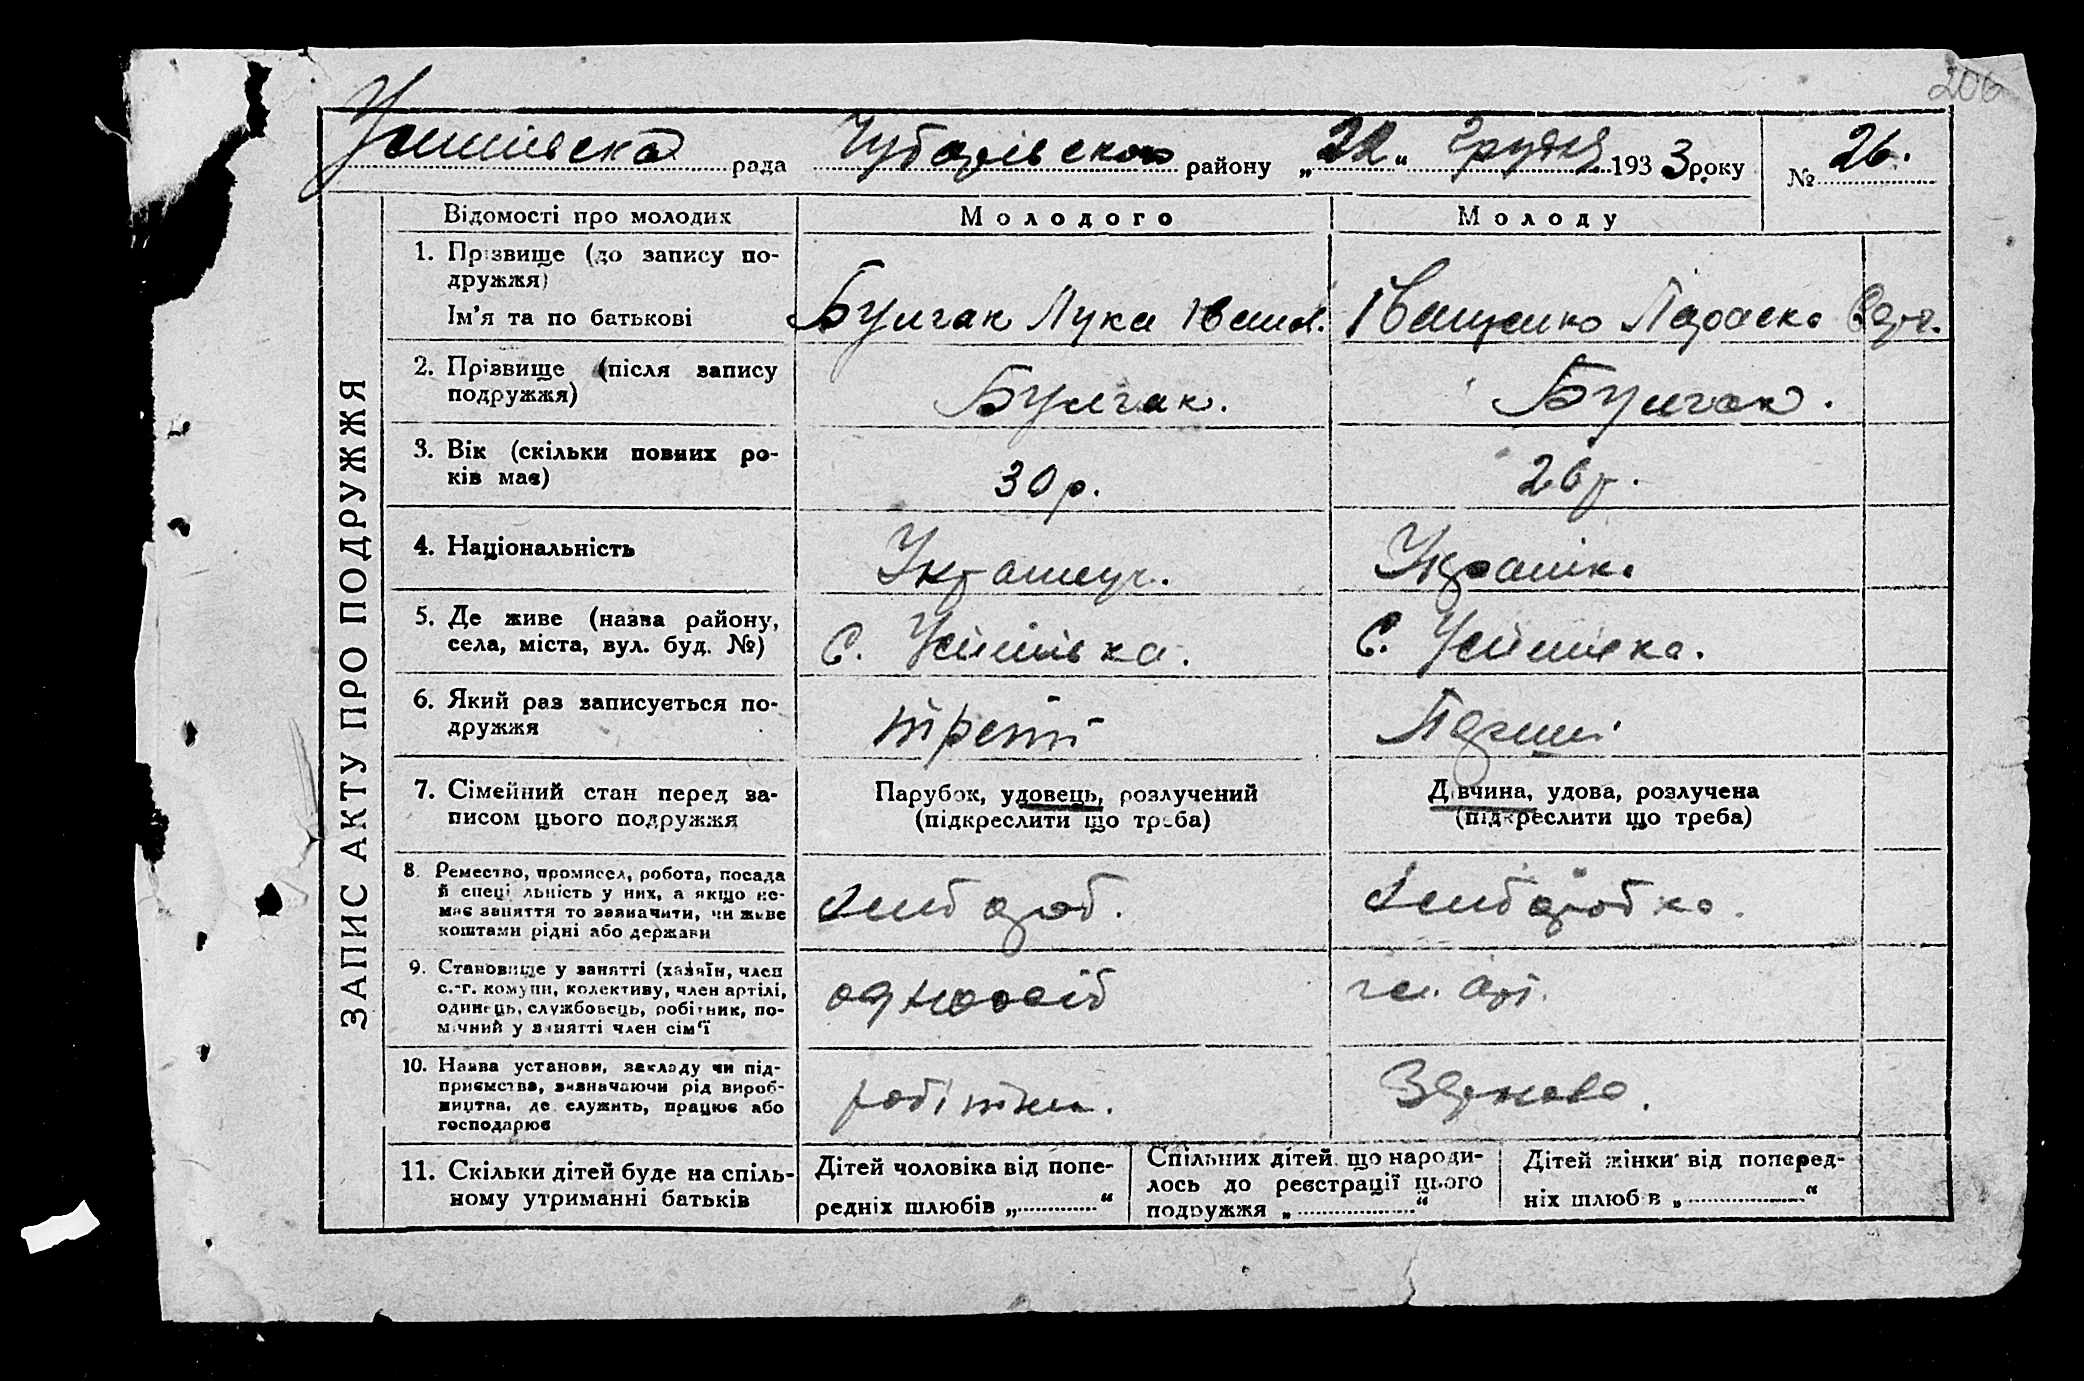 206
Успенівска рада Чубарівського району „22“ Грудня 1933 року № 26.
ЗАПИС АКТУ ПРО ПОДРУЖЖЯ
Відомості про молодих
Молодого
Молоду
1. Прізвище (до запису по-
дружжя)
Ім'я та по батькові
Булгак Лука Іван.
Іващенко Параска
2. Прізвище (після запису
подружжя)
Булгак.
Булгак.
3. Вік (скільки повних ро-
ків має)
30 р.
26 р.
4. Національність
Українец.
Українка
5. Де живе (назва району,
села, міста, вул. буд. №)
С. Успенівка.
С. Успенівка.
6. Який раз записується по-
дружжя
третій
Перший
7. Сімейний стан перед за-
писом цього подружжя
Парубок, удовець, розлучений
(підкреслити що треба)
Дівчина, удова, розлучена
(підкреслити що треба)
8. Ремество, промисел, робота, посада
й спеціяльність у них, а якщо не-
має заняття то зазначити, чи живе
коштами рідні або держави
хлібороб.
хліборобка.
9. Становище у занятті (хазяїн, член
с.-г. комуни, колективу, член артілі,
одинець, службовець, робітник, по-
мічний у занятті член сім'ї
одноосіб
чл. арт.
10. Назва установи, закладу чи під-
приємства, визначаючи рід вироб-
ництва, де служить, працює або
господарює
робітник.
Зернова.
11. Скільки дітей буде на спіль-
ному утриманні батьків
Дітей чоловіка від попе-
редніх шлюбів „ “
Спільних дітей що народи-
лось до реєстрації цього
подружжя „ “
Дітей жінки від поперед-
ніх шлюбів „ “